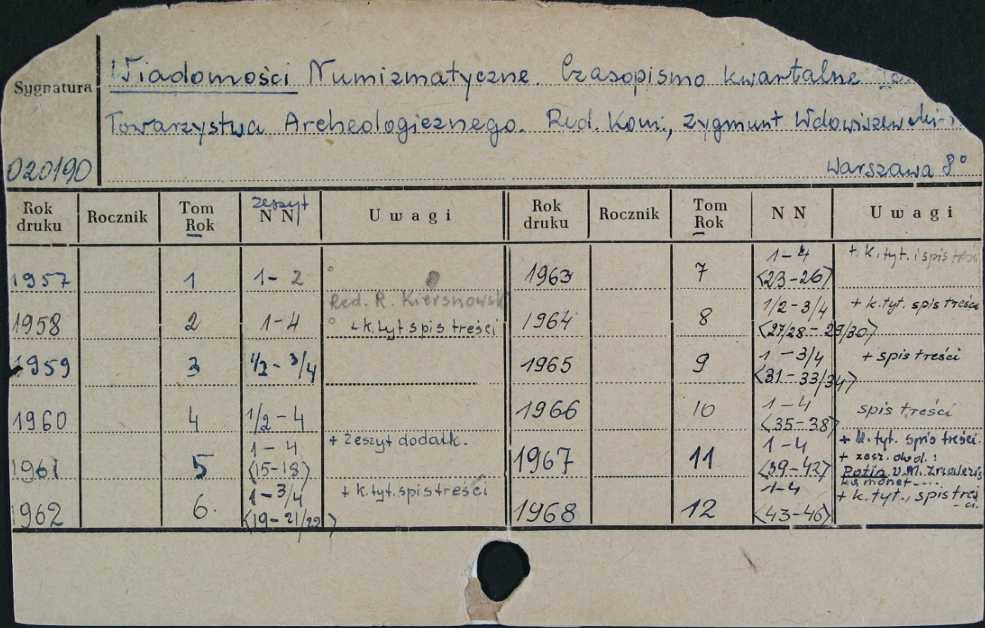 Wiadomości Numizmatyczne. Czasopismo kwartalne
Sygnatura
Towarzystwa Archeologicznego. Red. Kom., Zygmunt Wdowiszewski
020190 Warszawa 8°
Rok druku Rocznik Tom Rok zeszyt N N Uwagi Rok druku Rocznik Tom Rok N N Uwagi
1957 1 1-2 1963 7 1-4 <23-26> + k. tyt. i spis treści
Red. R. Kiersnowski
1958 2 1-4 + k. tyt spis treści 1964 8 1/2-3/4 <27/28-29/30> + k. tyt. spis treści
1959 3 1/2-3/4 1965 9 1-3/4 <31-33/34> + spis treści
1960 4 1/2-4 1966 10 1-4 <35-38> spis treści
1961 5 1-4 <15-18> + zeszyt dodatk. 1967 11 1-4 <39-42> + k. tyt. spis treści.
+ zesz. dod.:
monet----
1962 6. 1-3/4 <19-21/22> + k. tyt. spis treści 1968 12 1-4 <43-46> + k. tyt., spis treści